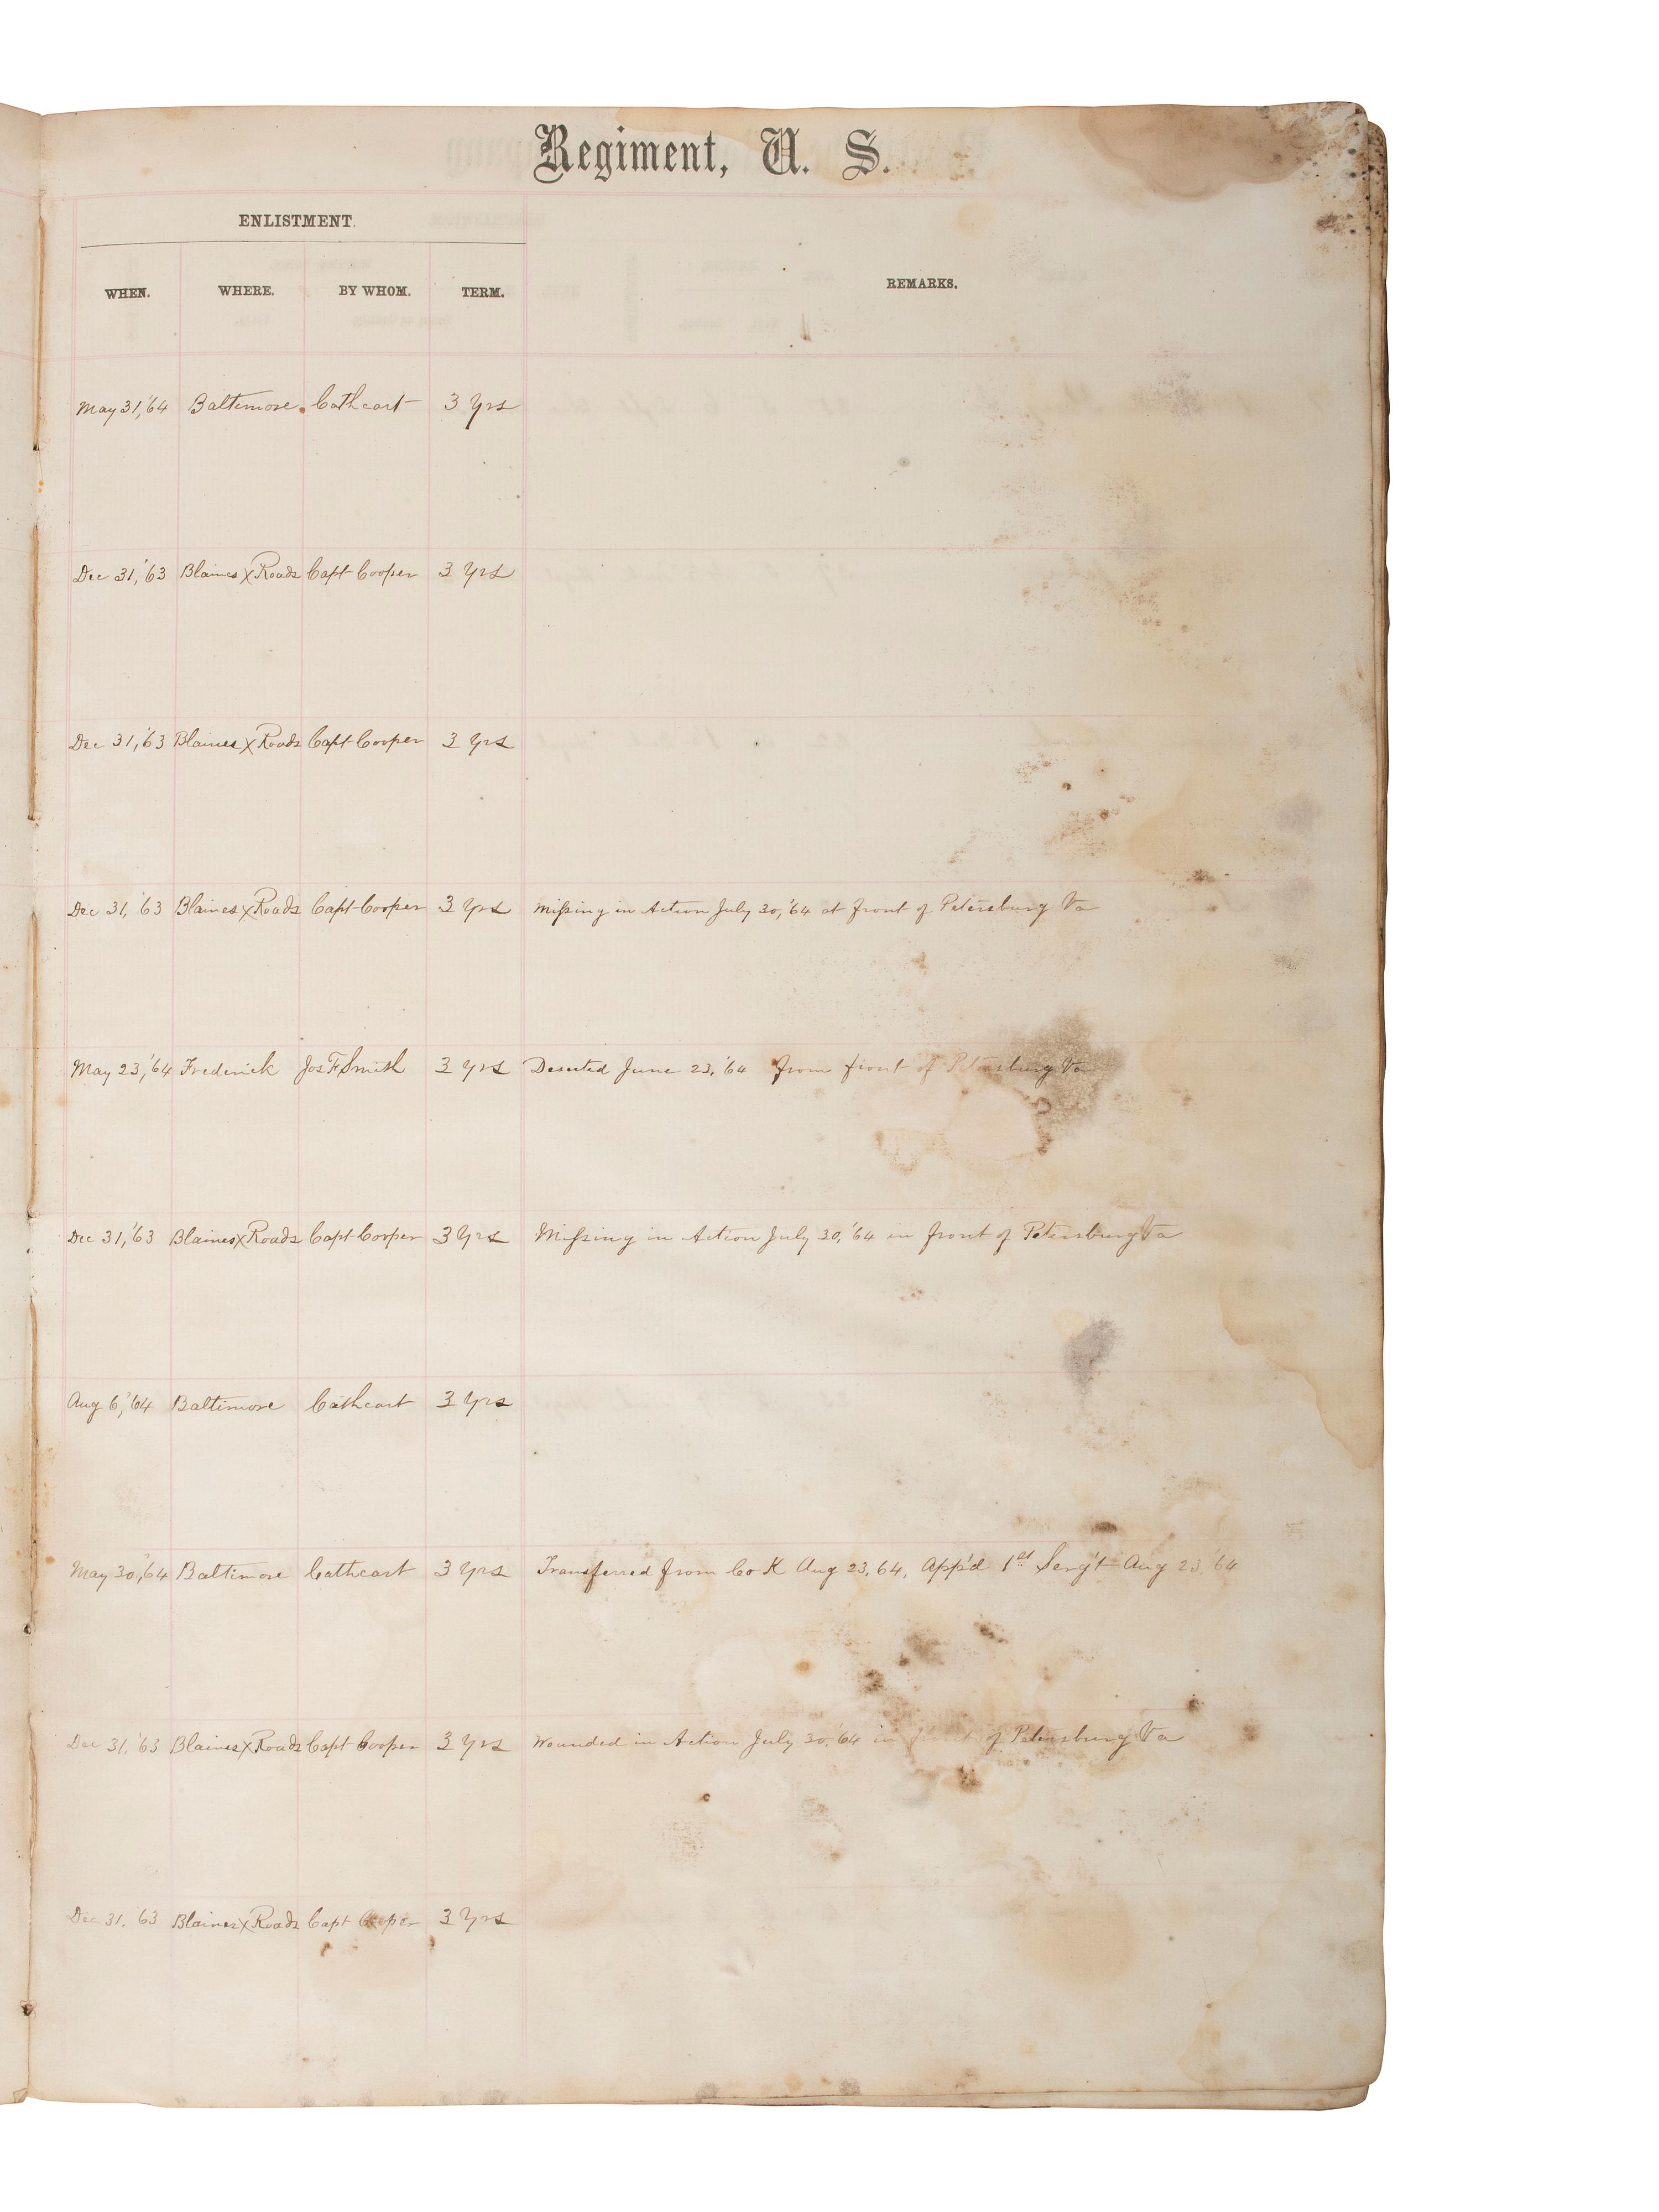 Regiment, U. S.
ENLISTMENT.
WHEN. WHERE. BY WHOM. TERM. REMARKS.
May 31,'64 Baltimore Cathcart 3 Yrs
Dec 31,'63 Blaines X Roads Capt Cooper 3 Yrs
Dec 31,'63 Blaines X Roads Capt Cooper 3 Yrs
Dec 31,'63 Blaines X Roads Capt Cooper 3 Yrs Missing in Action July 30,'64 at front of Petersburg Va
May 23,'64 Frederick Jos F Smith 3 Yrs Deserted June 23,'64 from front of Petersburg Va
Dec 31,'63 Blaines X Roads Capt Cooper 3 Yrs Missing in Action July 30,'64 in front of Petersburg Va
Aug 6,'64 Baltimore Cathcart 3 Yrs
May 30,'64 Baltimore Cathcart 3 Yrs Transferred from Co K Aug 23, 64, App'd 1st Serg't Aug 23 '64
Dec 31,'63 Blaines X Roads Capt Cooper 3 Yrs Wounded in Action July 30,'64 in front of Petersburg Va
Dec 31,'63 Blaines X Roads Capt Cooper 3 Yrs